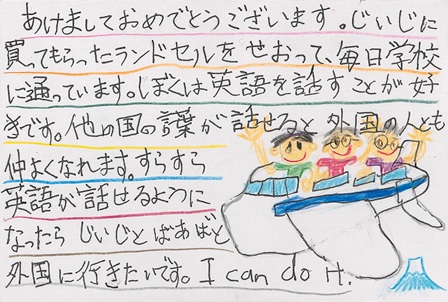 あけましておめでとうございます。じいじに
買ってもらったランドセルをせおって、毎日学校
に通っています。ぼくは英語を話すことが好
きです。他の国の言葉が話せると外国の人とも
仲よくなれます。すらすら
英語が話せるように
なったらじいじとばあばと
外国に行きたいです。I can do it.